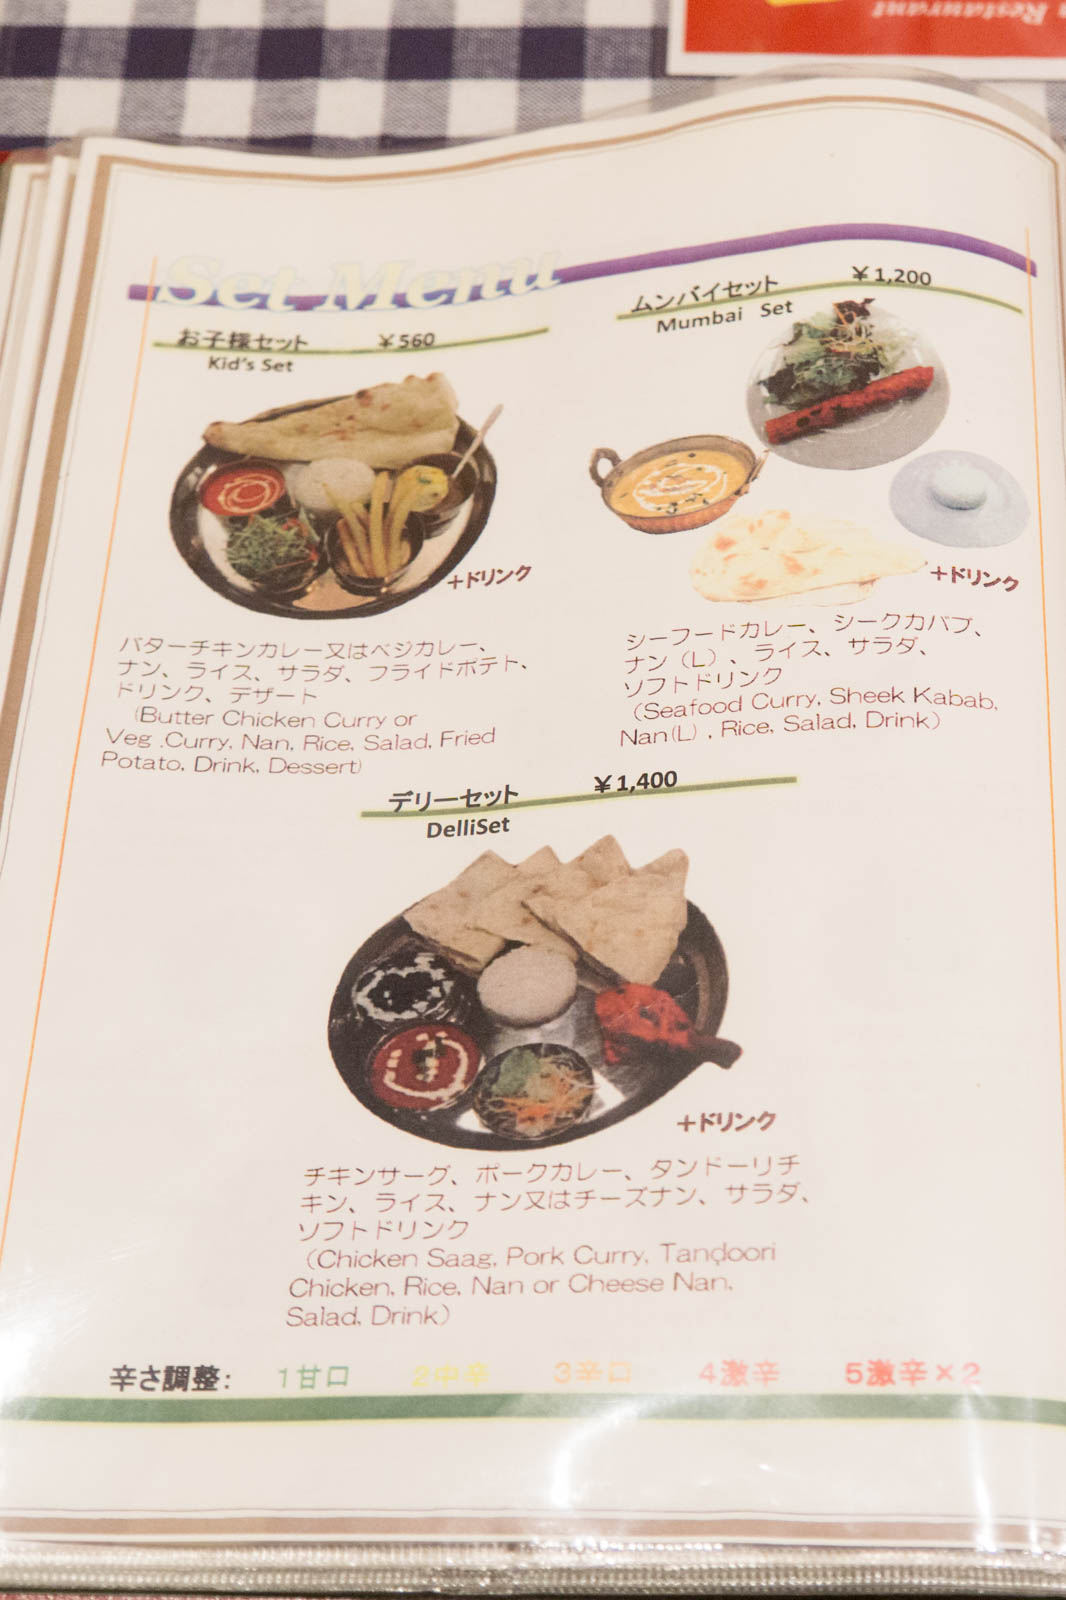 Restaurant
Set Menu
お子様セット ￥560
Kid's Set
+ドリンク
バターチキンカレー又はベジカレー、
ナン、ライス、サラダ、フライドポテト、
ドリンク、デザート
(Butter Chicken Curry or
Veg .Curry, Nan, Rice, Salad, Fried
Potato, Drink, Dessert)
ムンバイセット ￥1,200
Mumbai Set
+ドリンク
シーフードカレー、シークカバブ、
ナン（L）、ライス、サラダ、
ソフトドリンク
（Seafood Curry, Sheek Kabab,
Nan(L) , Rice, Salad, Drink）
デリーセット ￥1,400
DelliSet
+ドリンク
チキンサーグ、ポークカレー、タンドーリチ
キン、ライス、ナン又はチーズナン、サラダ、
ソフトドリンク
（Chicken Saag, Pork Curry, Tandoori
Chicken, Rice, Nan or Cheese Nan,
Salad, Drink）
辛さ調整： 1甘口 2中辛 3辛口 4激辛 5激辛×2